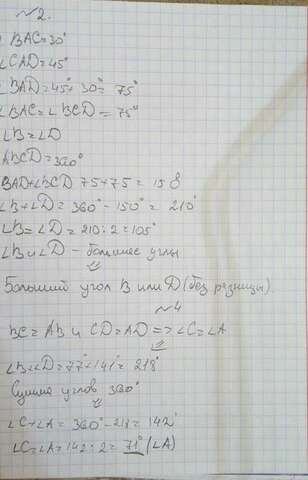 №2.
BAC=30°
∠CAD=45°
∠BAD=45°+30°=75°
∠BAC=∠BCD=75°
∠B=∠D
ABCD=360°
BAD+∠BCD 75+75=150
∠B+∠D=360°-150°=210°
∠B=∠D=210:2=105°
∠B и ∠D - большие углы
Больший угол B или D (без разницы).
№4
BC=AB и CD=AD=>∠C=∠A
∠B+∠D=77°+141°=218°
Сумма углов 360°
∠C+∠A=360°-218=142°
∠C=∠A=142:2=71° (∠A)